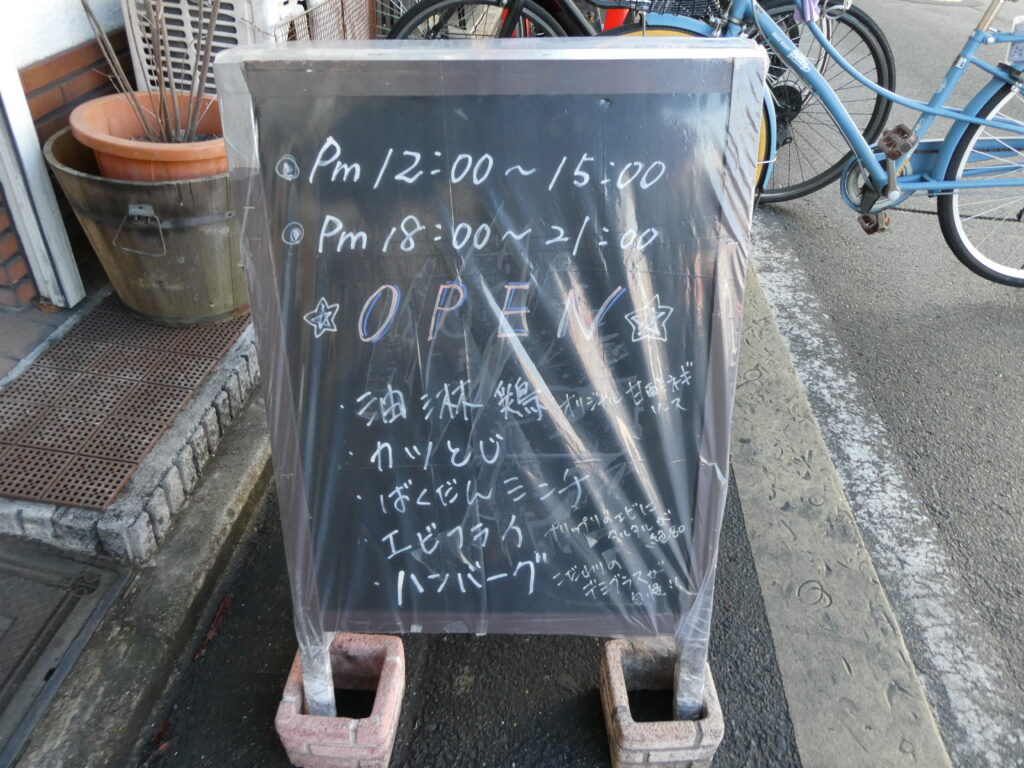 Pm 12:00～15:00
Pm 18:00～21:00
OPEN
・油淋鶏 オリジナル甘酢ネギ
ソース
・カツとじ
・ばくだんミンチ
・エビフライ プリップリのエビに
タルタルが
絶品
・ハンバーグ こだわりの
デミグラスが